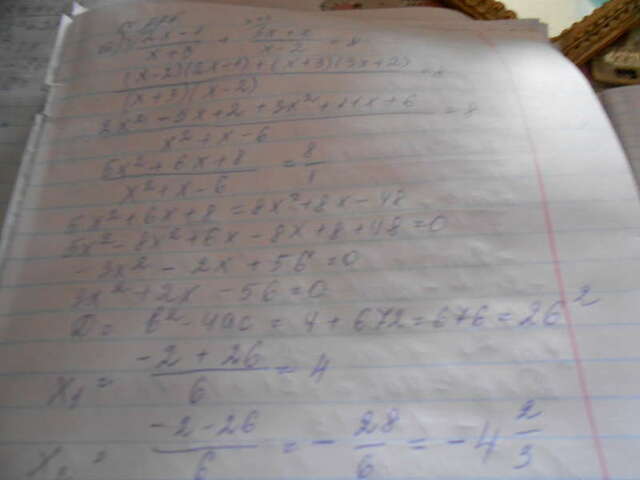 (2x-1)/(x+3) + (3x+2)/(x-2) = 8
((x-2)(2x-1)+(x+3)(3x+2))/((x+3)(x-2)) = 8
(2x²-5x+2+3x²+11x+6)/(x²+x-6) = 8
(5x²+6x+8)/(x²+x-6) = 8/1
5x²+6x+8=8x²+8x-48
5x²-8x²+6x-8x+8+48=0
-3x²-2x+56=0
3x²+2x-56=0
D= b²-4ac = 4+672=676=26²
x₁ = (-2+26)/6 = 4
x₂ = (-2-26)/6 = -28/6 = -4 2/3